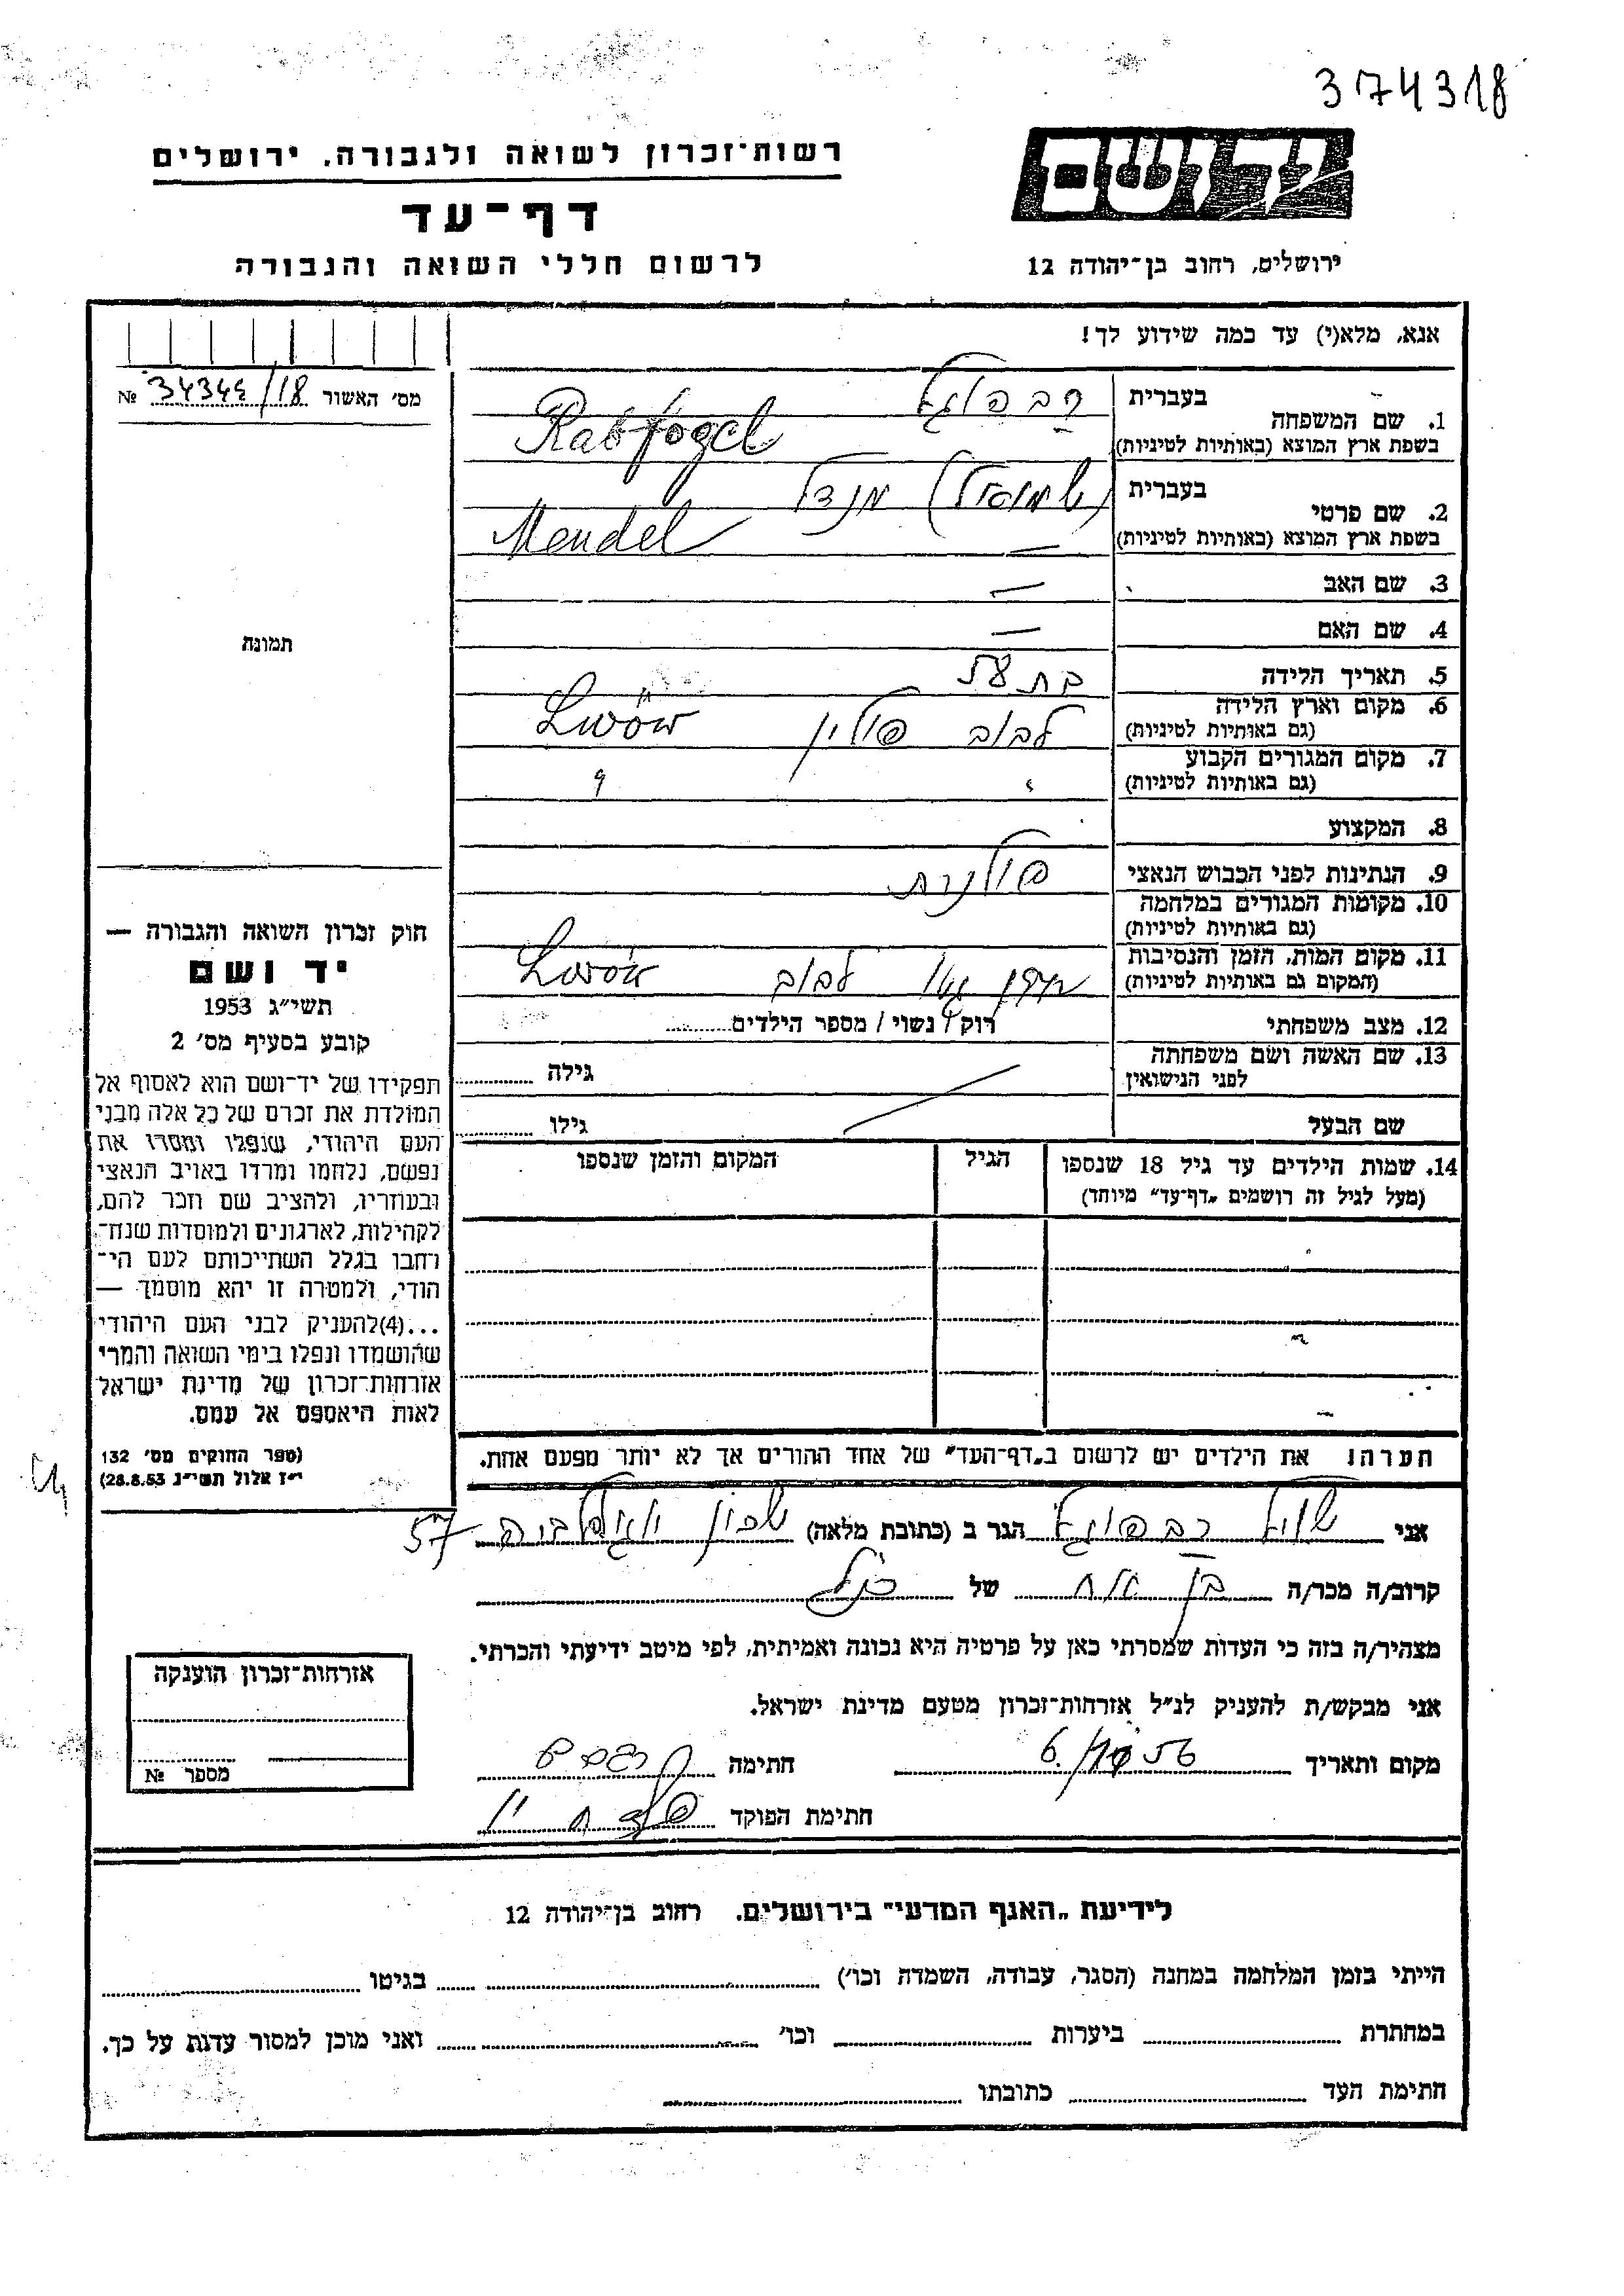 374318
רשות־זכרון לשואה ולגבורה. ירושלים
דף־עד
לרשום חללי השואה והגבורה
יד ושם
ירושלים, רחוב בן־יהודה 12
אנא, מלא(י) עד כמה שידוע לך!
מס׳ האשור 34345/18 №
1. שם המשפחה
בעברית רבפוגל
בשפת ארץ המוצא (באותיות לטיניות) Rabfogel
2. שם פרטי
בעברית (שמואל) מנדל
בשפת ארץ המוצא (באותיות לטיניות) Mendel
3. שם האב —
4. שם האם —
5. תאריך הלידה
6. מקום וארץ הלידה
(גם באותיות לטיניות) לבוב פולין Lwów
7. מקום המגורים הקבוע
(גם באותיות לטיניות)
8. המקצוע
9. הנתינות לפני הכבוש הנאצי פולנית
10. מקומות המגורים במלחמה
(גם באותיות לטיניות)
11. מקום המות, הזמן והנסיבות
(המקום גם באותיות לטיניות) לבוב Lwów
12. מצב משפחתי רוק / נשוי / מספר הילדים
13. שם האשה ושם משפחתה
לפני הנישואין גילה
שם הבעל גילו
14. שמות הילדים עד גיל 18 שנספו הגיל המקום והזמן שנספו
(מעל לגיל זה רושמים „דף־עד״ מיוחד)
תמונה
חוק זכרון השואה והגבורה —
יד ושם
תשי״ג 1953
קובע בסעיף מס׳ 2
תפקידו של יד־ושם הוא לאסוף אל
המולדת את זכרם של כל אלה מבני
העם היהודי, שנפלו ומסרו את
נפשם, נלחמו ומרדו באויב הנאצי
ובעוזריו, ולהציב שם וזכר להם,
לקהילות, לארגונים ולמוסדות שנח־
רחבו בגלל השתייכותם לעם הי־
הודי, ולמטרה זו יהא מוסמך —
...(4)להעניק לבני העם היהודי
שהושמדו ונפלו בימי השואה והמרי
אזרחות־זכרון של מדינת ישראל
לאות היאספם אל עמם.
(ספר החוקים מס׳ 132
י״ז אלול תשי״ג 28.8.53)
הערה: את הילדים יש לרשום ב„דף־העד״ של אחד ההורים אך לא יותר מפעם אחת.
אני רבפוגל הגר ב (כתובת מלאה) שכון 57
קרוב/ה מכר/ה בן אח של הנ״ל
מצהיר/ה בזה כי העדות שמסרתי כאן על פרטיה היא נכונה ואמיתית, לפי מיטב ידיעתי והכרתי.
אני מבקש/ת להעניק לנ״ל אזרחות־זכרון מטעם מדינת ישראל.
מקום ותאריך חתימה
חתימת הפוקד
אזרחות־זכרון הוענקה
מספר №
לידיעת „האגף המדעי״ בירושלים. רחוב בן־יהודה 12
הייתי בזמן המלחמה במחנה (הסגר, עבודה, השמדה וכו׳) בגיטו
במחתרת ביערות וכו׳ ואני מוכן למסור עדות על כך.
חתימת העד כתובתו